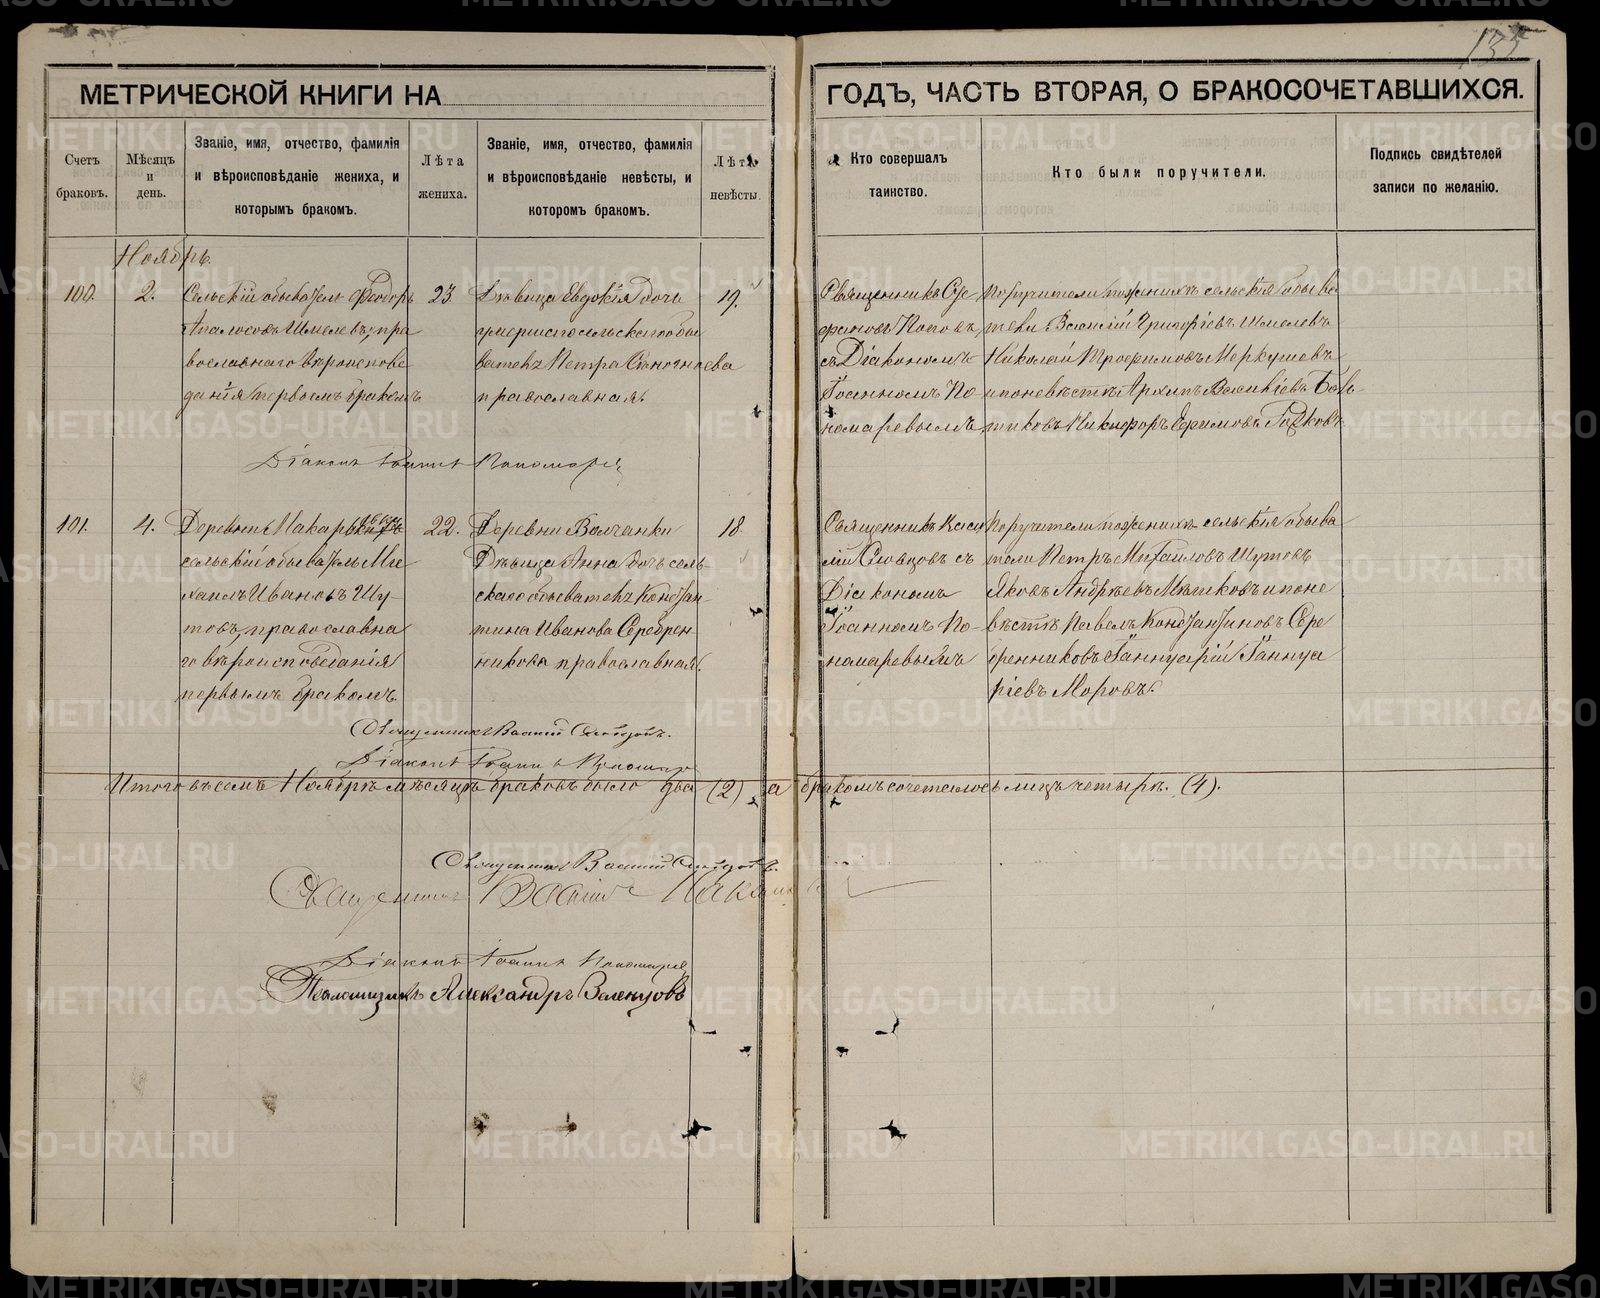 135
МЕТРИЧЕСКОЙ КНИГИ НА
ГОДЪ, ЧАСТЬ ВТОРАЯ, О БРАКОСОЧЕТАВШИХСЯ.
Счетъ
браковъ.
Мѣсяцъ
и
день.
Званіе, имя, отчество, фамилія
и вѣроисповѣданіе жениха, и
которымъ бракомъ.
Лѣта
жениха.
Званіе, имя, отчество, фамилія
и вѣроисповѣданіе невѣсты, и
котором бракомъ.
Лѣта
невѣсты.
Кто совершалъ
таинство.
Кто были поручители.
Подпись свидѣтелей
записи по желанію.
Ноябрь.
100.
2.
Сельскій обыватель Ѳеодоръ
Шмелевъ, пра
вославнаго вѣроисповѣ
данія первымъ бракомъ
23
Дѣвица Евдокія дочь
умершаго сельскаго обы
вателя Петра
православная.
19.
Священникъ Сте
фановъ Поповъ
съ Діакономъ
Іоанномъ По
номаревымъ
Поручители по женихѣ сельскія обыва
тели: Василій Григорьевъ Шмелевъ
Николай Трофимовъ Меркушевъ
и по невѣстѣ Архипъ Васильевъ
Никифоръ Ефимовъ
Діаконъ Іоаннъ Пономаревъ
101.
4.
Деревни
сельскій обыватель Ми
хаилъ Ивановъ Шу-
товъ, православна
го вѣроисповѣданія
первымъ бракомъ
22.
Деревни Волчанки
Дѣвица Анна дочь сель
скаго обывателя Констан
тина Иванова Серебрен
никова православная.
18
Священникъ Васи
лій Словцовъ съ
Діакономъ
Іоанномъ По-
номаревымъ
Поручители по женихѣ сельскія обыва
тели Петръ Михайловъ Шутовъ
Яковъ Андрѣевъ Мѣшковъ и по не
вѣстѣ Павелъ Константиновъ Сере
бренниковъ Іаннуарій Іаннуа
ріевъ Моровъ.
Священникъ Василій Словцовъ.
Діаконъ Іоаннъ Пономаревъ
Итого въ семъ Ноябрѣ мѣсяцѣ браковъ было два (2) а бракомъ сочеталось лицъ четыре. (4).
Священникъ Василій Словцовъ.
Священникъ Василій
Діаконъ Іоаннъ Пономаревъ
Псаломщикъ Александръ Веленцовъ
METRIKI.GASO-URAL.RU